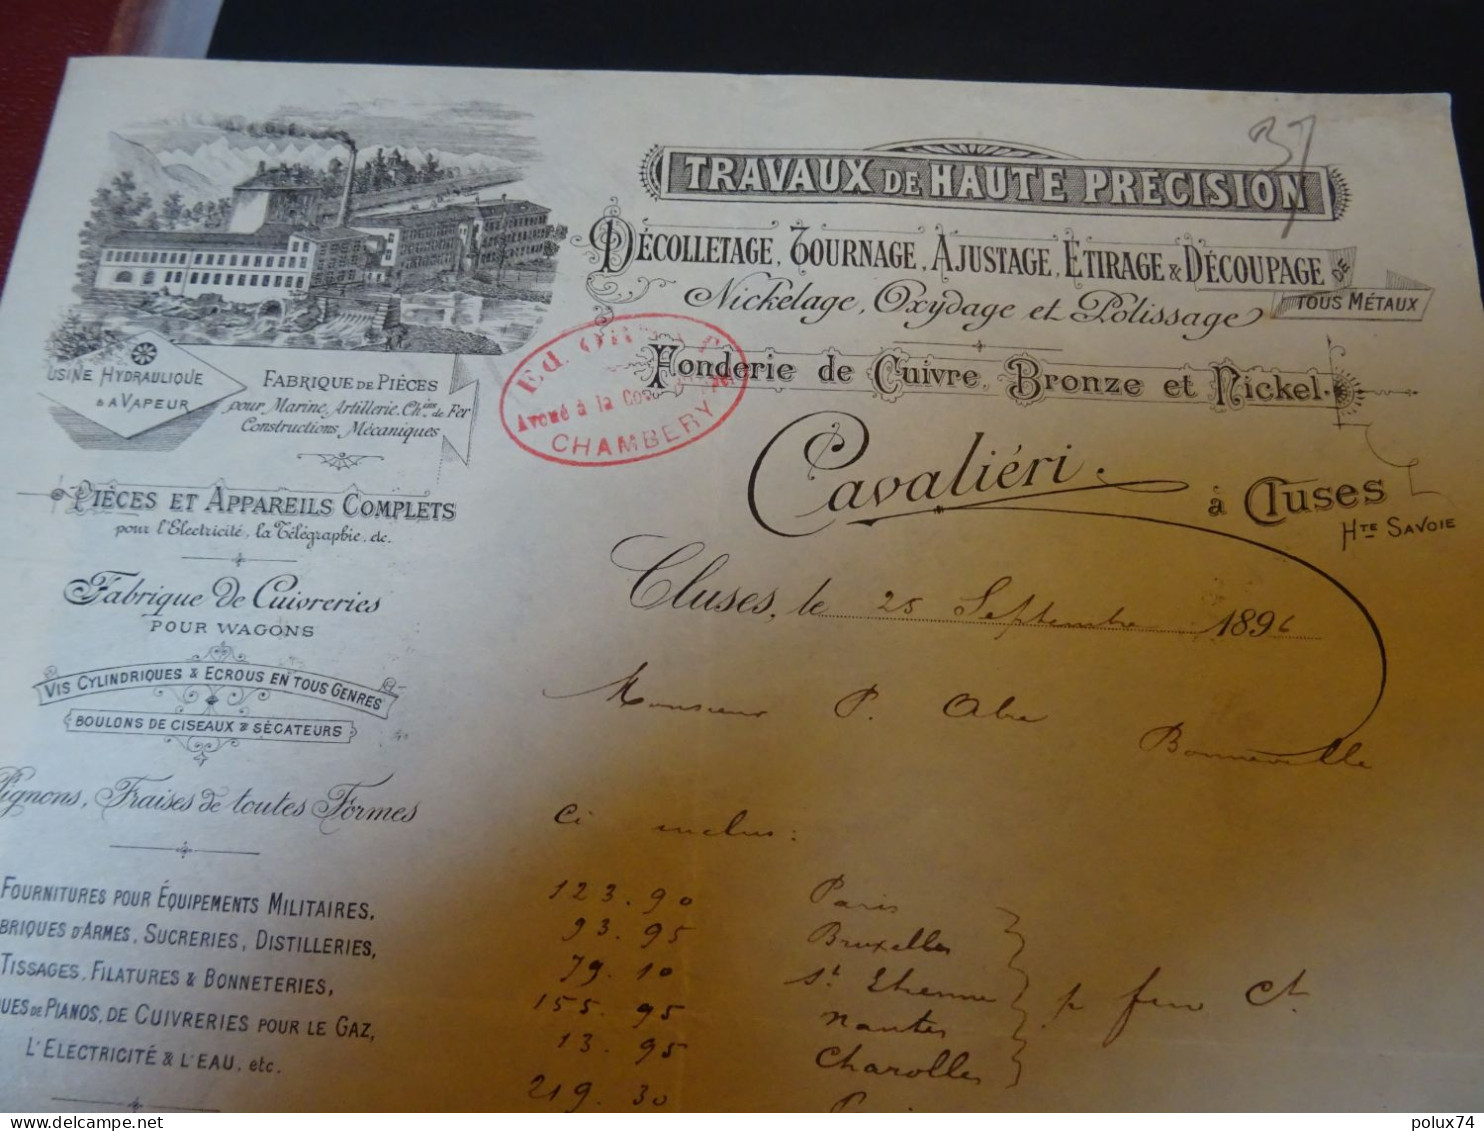 37
TRAVAUX DE HAUTE PRÉCISION
DÉCOLLETAGE, TOURNAGE, AJUSTAGE, ETIRAGE & DÉCOUPAGE DE
TOUS MÉTAUX
Nickelage, Oxydage et Polissage
Fonderie de Cuivre, Bronze et Nickel.
USINE HYDRAULIQUE
& A VAPEUR
FABRIQUE DE PIÈCES
pour Marine, Artillerie, Ch.ins de Fer
Constructions Mécaniques
Ed.
Avoué à la
CHAMBERY
Cavaliéri à CLUSES
HTE SAVOIE
PIÈCES ET APPAREILS COMPLETS
pour l'Electricité, la Télégraphie, etc.
Fabrique de Cuivreries
POUR WAGONS
VIS CYLINDRIQUES & ECROUS EN TOUS GENRES
BOULONS DE CISEAUX & SÉCATEURS
Pignons, Fraises de toutes Formes
FOURNITURES POUR ÉQUIPEMENTS MILITAIRES,
BRIQUES D'ARMES, SUCRERIES, DISTILLERIES,
TISSAGES, FILATURES & BONNETERIES,
UES DE PIANOS, DE CUIVRERIES POUR LE GAZ,
L'ELECTRICITÉ & L'EAU, etc.
Cluses, le 25 Septembre 1896
Monsieur P.
Bonneville
Ci inclus:
123.90 Paris
93.95 Bruxelles
79.10 St Etienne
155.95 Nantes
13.95 Charolles
219.30
delcampe.net
polux74